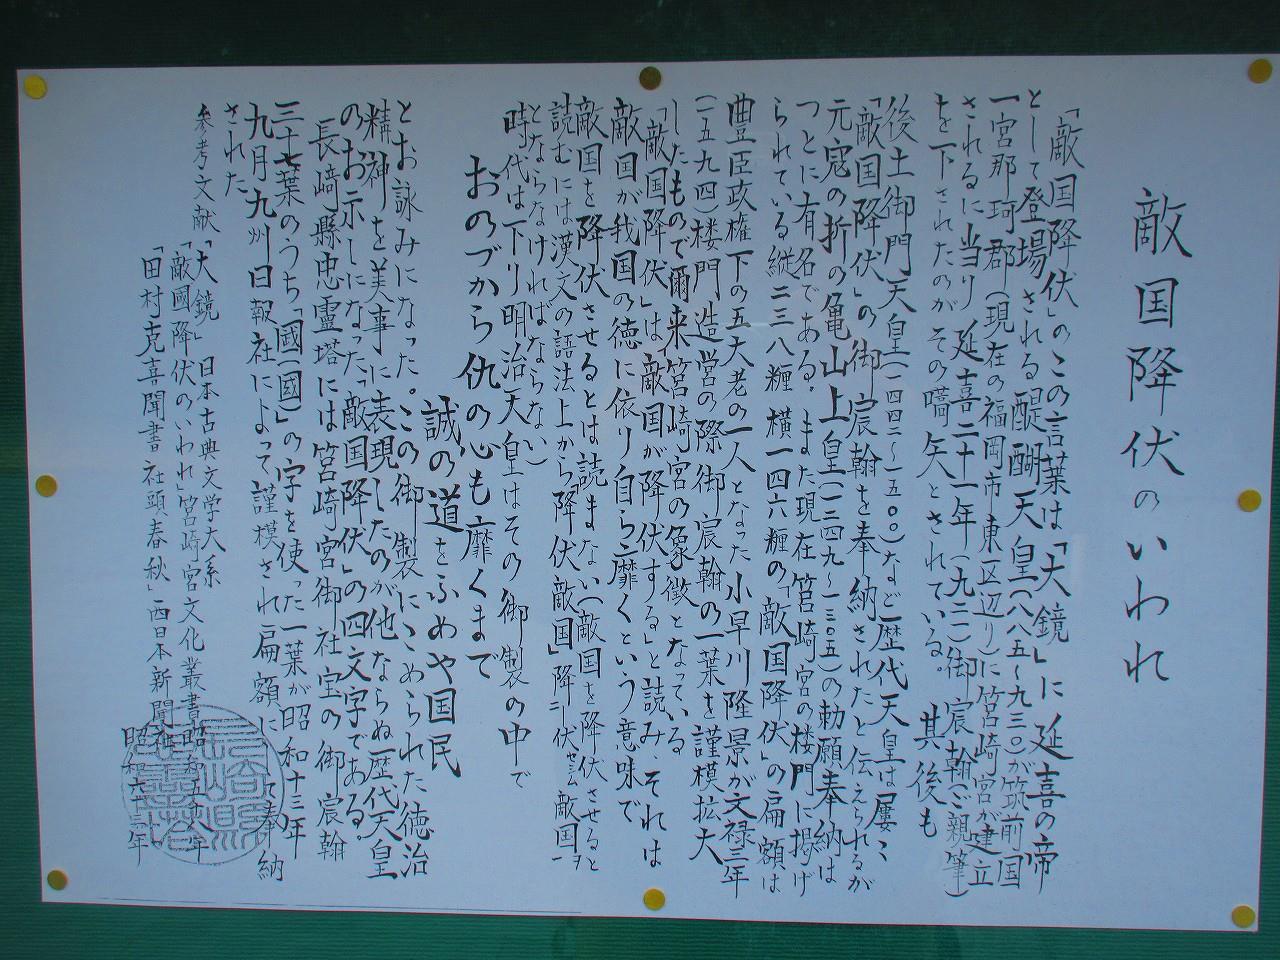 敵国降伏のいわれ
「敵国降伏」のこの言葉は「大鏡」に延喜の帝
として登場される醍醐天皇(八八五〜九三〇)が筑前国
一宮那珂郡(現在の福岡市東区辺り)に筥崎宮が建立
されるに当り延喜二十一年(九二一)御宸翰(ご親筆)
を下されたのがその嚆矢とされている。其後も
後土御門天皇(一四四二〜一五〇〇)など歴代天皇は屢々
「敵国降伏」の御宸翰を奉納されたと伝えられるが
元寇の折の亀山上皇(一二四九〜一三〇五)の勅願奉納は
つとに有名である。また現在筥崎宮の楼門に掲げ
られている縦二三八糎横一四六糎の「敵国降伏」の扁額は
豊臣政権下の五大老の一人となった小早川隆景が文禄三年
(一五九四)楼門造営の際御宸翰の一葉を謹模拡大
したもので爾来筥崎宮の象徴となっている
「敵国降伏」は「敵国が降伏する」と読み、それは
敵国が我国の徳に依り自ら靡くという意味で
敵国を降伏させるとは読まない(敵国を降伏させると
読むには漢文の語法上から「降伏敵国」降ニ伏セシム敵国一ヲ
とならなければならない)
時代は下り明治大皇はその御製の中で
おのづから仇の心も靡くまで
誠の道をふめや国民
とお詠みになった。この御製にこめられた徳治
精神を美事に表現したのが他ならぬ歴代天皇
のお示しになった「敵国降伏」の四文字である。
長崎縣忠靈塔には筥崎宮御社宝の御宸翰
三十七葉のうち「國(国)」の字を使った一葉が昭和十三年
九月九州日報社によって謹模され扁額に 奉納
された
参考文献「大鏡」日本古典文学大系
「敵國降伏のいわれ」筥崎宮文化叢書 昭和五十八年
「田村克喜聞書 社頭春秋」西日本新聞社 昭和六十三年